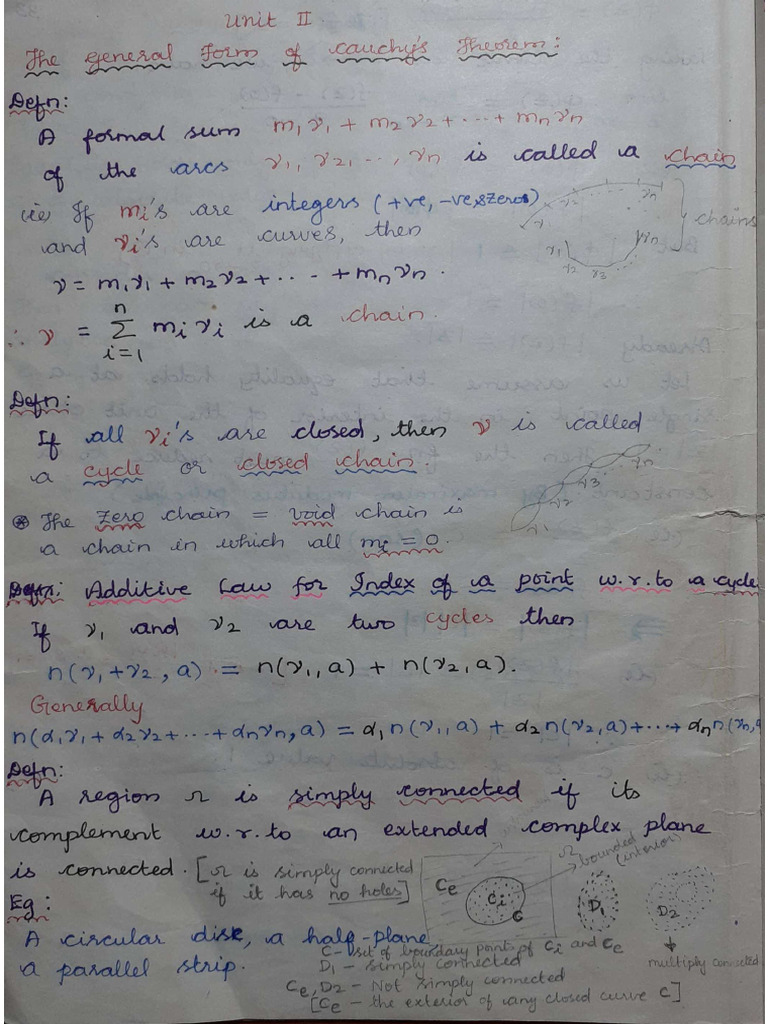 Unit II
The General Form of Cauchy's Theorem:
Defn:
A formal sum m₁γ₁ + m₂γ₂ + ... + mₙγₙ
of the arcs γ₁, γ₂, ..., γₙ is called a chain
(ie) If mᵢ's are integers (+ve, -ve, zeros)
and γᵢ's are curves, then
γ = m₁γ₁ + m₂γ₂ + ... + mₙγₙ.
∴ γ = Σ_{i=1}^{n} mᵢγᵢ is a chain.
γ₁ γ₂ γₙ
γ₁ γ₂ γ₃ γₙ
} chains
Defn:
If all γᵢ's are closed, then γ is called
a cycle or closed chain.
γ₁ γ₂ γ₃ γₙ
⊛ The zero chain = void chain is
a chain in which all mᵢ = 0.
Defn: Additive Law for Index of a point w.r.to a cycle
If γ₁ and γ₂ are two cycles then
n(γ₁+γ₂, a) = n(γ₁, a) + n(γ₂, a).
Generally
n(α₁γ₁ + α₂γ₂ + ... + αₙγₙ, a) = α₁n(γ₁, a) + α₂n(γ₂, a) + ... + αₙn(γₙ, a
Defn:
A region Ω is simply connected if its
complement w.r.to an extended complex plane
is connected. [Ω is simply connected
if it has no holes]
Ω bounded (interior)
Cₑ Cᵢ C D₁ D₂
Eg:
A circular disk, a half-plane
a parallel strip.
C - set of boundary points of Cᵢ and Cₑ
D₁ - simply connected
multiply connected
Cₑ, D₂ - Not simply connected
[Cₑ - the exterior of any closed curve C]